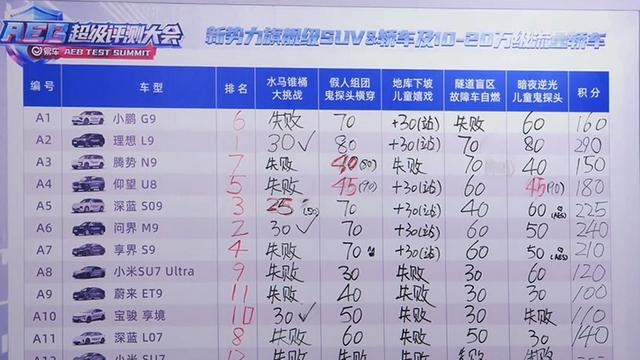 AEB超级评测大会
易车 AEB TEST SUMMIT
新势力旗舰级SUV&轿车及10-20万级流量轿车
编号 车型 排名 水马锥桶大挑战 假人组团鬼探头横穿 地库下坡儿童嬉戏 隧道盲区故障车自燃 暗夜逆光儿童鬼探头 积分
A1 小鹏 G9 6 失败 70 +30(站) 失败 60 160
A2 理想 L9 1 30✓ 80 +30(站) 70 80 290
A3 腾势 N9 7 失败 40(80) 失败 70 40 150
A4 仰望 U8 5 失败 45(90) +30(站) 60 45(90) 180
A5 深蓝 S09 3 25(50) 70 +30(站) 40 60(AES) 225
A6 问界 M9 2 30✓ 70 +30(站) 60 50 240
A7 享界 S9 4 失败 70 +30(站) 60 50(AES) 210
A8 小米SU7 Ultra 9 失败 30 失败 30 60 120
A9 蔚来 ET9 11 失败 40 失败 30 失败
A10 宝骏 享境 10 30✓ 50 失败 30 失败 110
A11 深蓝 L07 8 失败 60 失败 50 30 140
小米 SU7